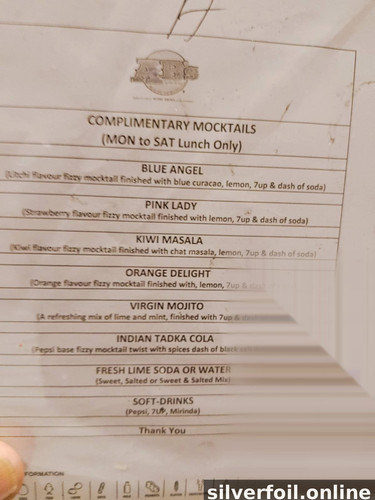 AB's
COMPLIMENTARY MOCKTAILS
(MON to SAT Lunch Only)
BLUE ANGEL
(Litchi flavour fizzy mocktail finished with blue curacao, lemon, 7up & dash of soda)
PINK LADY
(Strawberry flavour fizzy mocktail finished with lemon, 7up & dash of soda)
KIWI MASALA
(Kiwi flavour fizzy mocktail finished with chat masala, lemon, 7up & dash of soda)
ORANGE DELIGHT
(Orange flavour fizzy mocktail finished with, lemon, 7up &
VIRGIN MOJITO
(A refreshing mix of lime and mint, finished with 7up &
INDIAN TADKA COLA
(Pepsi base fizzy mocktail twist with spices dash of black
FRESH LIME SODA OR WATER
(Sweet, Salted or Sweet & Salted Mix)
SOFT-DRINKS
(Pepsi, 7UP, Mirinda)
Thank You
FORMATION
silverfoil.online